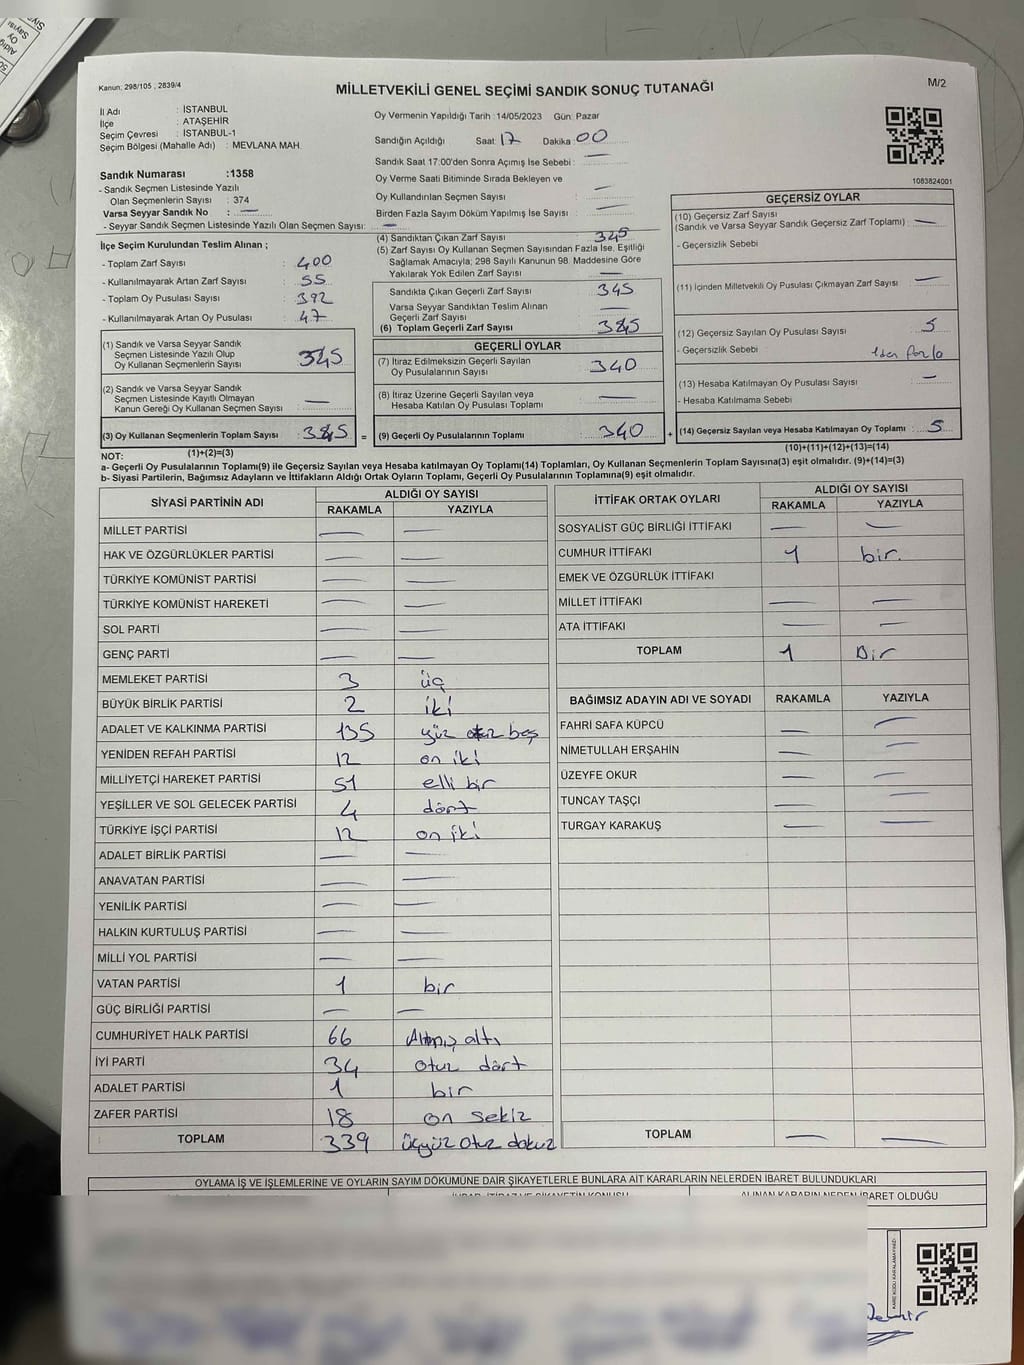 Kanun: 298/105 , 2839/4
MİLLETVEKİLİ GENEL SEÇİMİ SANDIK SONUÇ TUTANAĞI
M/2
İl Adı : İSTANBUL
İlçe : ATAŞEHİR
Seçim Çevresi : İSTANBUL-1
Seçim Bölgesi (Mahalle Adı) : MEVLANA MAH.
Sandık Numarası :1358
- Sandık Seçmen Listesinde Yazılı
Olan Seçmenlerin Sayısı : 374
Varsa Seyyar Sandık No : —
- Seyyar Sandık Seçmen Listesinde Yazılı Olan Seçmen Sayısı: —
Oy Vermenin Yapıldığı Tarih :14/05/2023 Gün: Pazar
Sandığın Açıldığı Saat: 17 Dakika: 00
Sandık Saat 17:00'den Sonra Açımış İse Sebebi : —
Oy Verme Saati Bitiminde Sırada Bekleyen ve
Oy Kullandırılan Seçmen Sayısı : —
Birden Fazla Sayım Döküm Yapılmış İse Sayısı : —
1083824001
İlçe Seçim Kurulundan Teslim Alınan ;
- Toplam Zarf Sayısı : 400
- Kullanılmayarak Artan Zarf Sayısı : 55
- Toplam Oy Pusulası Sayısı : 392
- Kullanılmayarak Artan Oy Pusulası : 47
(1) Sandık ve Varsa Seyyar Sandık
Seçmen Listesinde Yazılı Olup
Oy Kullanan Seçmenlerin Sayısı : 345
(2) Sandık ve Varsa Seyyar Sandık
Seçmen Listesinde Kayıtlı Olmayan
Kanun Gereği Oy Kullanan Seçmen Sayısı : —
(3) Oy Kullanan Seçmenlerin Toplam Sayısı : 345 =
(1)+(2)=(3)
(4) Sandıktan Çıkan Zarf Sayısı : 345
(5) Zarf Sayısı Oy Kullanan Seçmen Sayısından Fazla İse, Eşitliği
Sağlamak Amacıyla; 298 Sayılı Kanunun 98. Maddesine Göre
Yakılarak Yok Edilen Zarf Sayısı : —
Sandıkta Çıkan Geçerli Zarf Sayısı : 345
Varsa Seyyar Sandıktan Teslim Alınan
Geçerli Zarf Sayısı : —
(6) Toplam Geçerli Zarf Sayısı : 345
GEÇERLİ OYLAR
(7) İtiraz Edilmeksizin Geçerli Sayılan
Oy Pusulalarının Sayısı : 340
(8) İtiraz Üzerine Geçerli Sayılan veya
Hesaba Katılan Oy Pusulası Toplamı : —
(9) Geçerli Oy Pusulalarının Toplamı : 340 +
GEÇERSİZ OYLAR
(10) Geçersiz Zarf Sayısı
(Sandık ve Varsa Seyyar Sandık Geçersiz Zarf Toplamı) : —
- Geçersizlik Sebebi
(11) İçinden Milletvekili Oy Pusulası Çıkmayan Zarf Sayısı : —
(12) Geçersiz Sayılan Oy Pusulası Sayısı : 5
- Geçersizlik Sebebi 1den fazla
(13) Hesaba Katılmayan Oy Pusulası Sayısı : —
- Hesaba Katılmama Sebebi
(14) Geçersiz Sayılan veya Hesaba Katılmayan Oy Toplamı : 5
(10)+(11)+(12)+(13)=(14)
NOT:
a- Geçerli Oy Pusulalarının Toplamı(9) ile Geçersiz Sayılan veya Hesaba katılmayan Oy Toplamı(14) Toplamları, Oy Kullanan Seçmenlerin Toplam Sayısına(3) eşit olmalıdır. (9)+(14)=(3)
b- Siyasi Partilerin, Bağımsız Adayların ve İttifakların Aldığı Ortak Oyların Toplamı, Geçerli Oy Pusulalarının Toplamına(9) eşit olmalıdır.
SİYASİ PARTİNİN ADI ALDIĞI OY SAYISI
RAKAMLA YAZIYLA
MİLLET PARTİSİ — —
HAK VE ÖZGÜRLÜKLER PARTİSİ — —
TÜRKİYE KOMÜNİST PARTİSİ — —
TÜRKİYE KOMÜNİST HAREKETİ — —
SOL PARTİ — —
GENÇ PARTİ — —
MEMLEKET PARTİSİ 3 üç
BÜYÜK BİRLİK PARTİSİ 2 iki
ADALET VE KALKINMA PARTİSİ 135 yüz otuz beş
YENİDEN REFAH PARTİSİ 12 on iki
MİLLİYETÇİ HAREKET PARTİSİ 51 elli bir
YEŞİLLER VE SOL GELECEK PARTİSİ 4 dört
TÜRKİYE İŞÇİ PARTİSİ 12 on iki
ADALET BİRLİK PARTİSİ — —
ANAVATAN PARTİSİ — —
YENİLİK PARTİSİ — —
HALKIN KURTULUŞ PARTİSİ — —
MİLLİ YOL PARTİSİ — —
VATAN PARTİSİ 1 bir
GÜÇ BİRLİĞİ PARTİSİ — —
CUMHURİYET HALK PARTİSİ 66 Altmış altı
İYİ PARTİ 34 otuz dört
ADALET PARTİSİ 1 bir
ZAFER PARTİSİ 18 on sekiz
TOPLAM 339 üçyüz otuz dokuz
İTTİFAK ORTAK OYLARI ALDIĞI OY SAYISI
RAKAMLA YAZIYLA
SOSYALİST GÜÇ BİRLİĞİ İTTİFAKI — —
CUMHUR İTTİFAKI 1 bir.
EMEK VE ÖZGÜRLÜK İTTİFAKI
MİLLET İTTİFAKI — —
ATA İTTİFAKI — —
TOPLAM 1 Bir
BAĞIMSIZ ADAYIN ADI VE SOYADI RAKAMLA YAZIYLA
FAHRİ SAFA KÜPCÜ — —
NİMETULLAH ERŞAHİN — —
ÜZEYFE OKUR — —
TUNCAY TAŞÇI — —
TURGAY KARAKUŞ — —
TOPLAM — —
OYLAMA İŞ VE İŞLEMLERİNE VE OYLARIN SAYIM DÖKÜMÜNE DAİR ŞİKAYETLERLE BUNLARA AİT KARARLARIN NELERDEN İBARET BULUNDUKLARI
ALINAN KARARIN NEDEN İBARET OLDUĞU